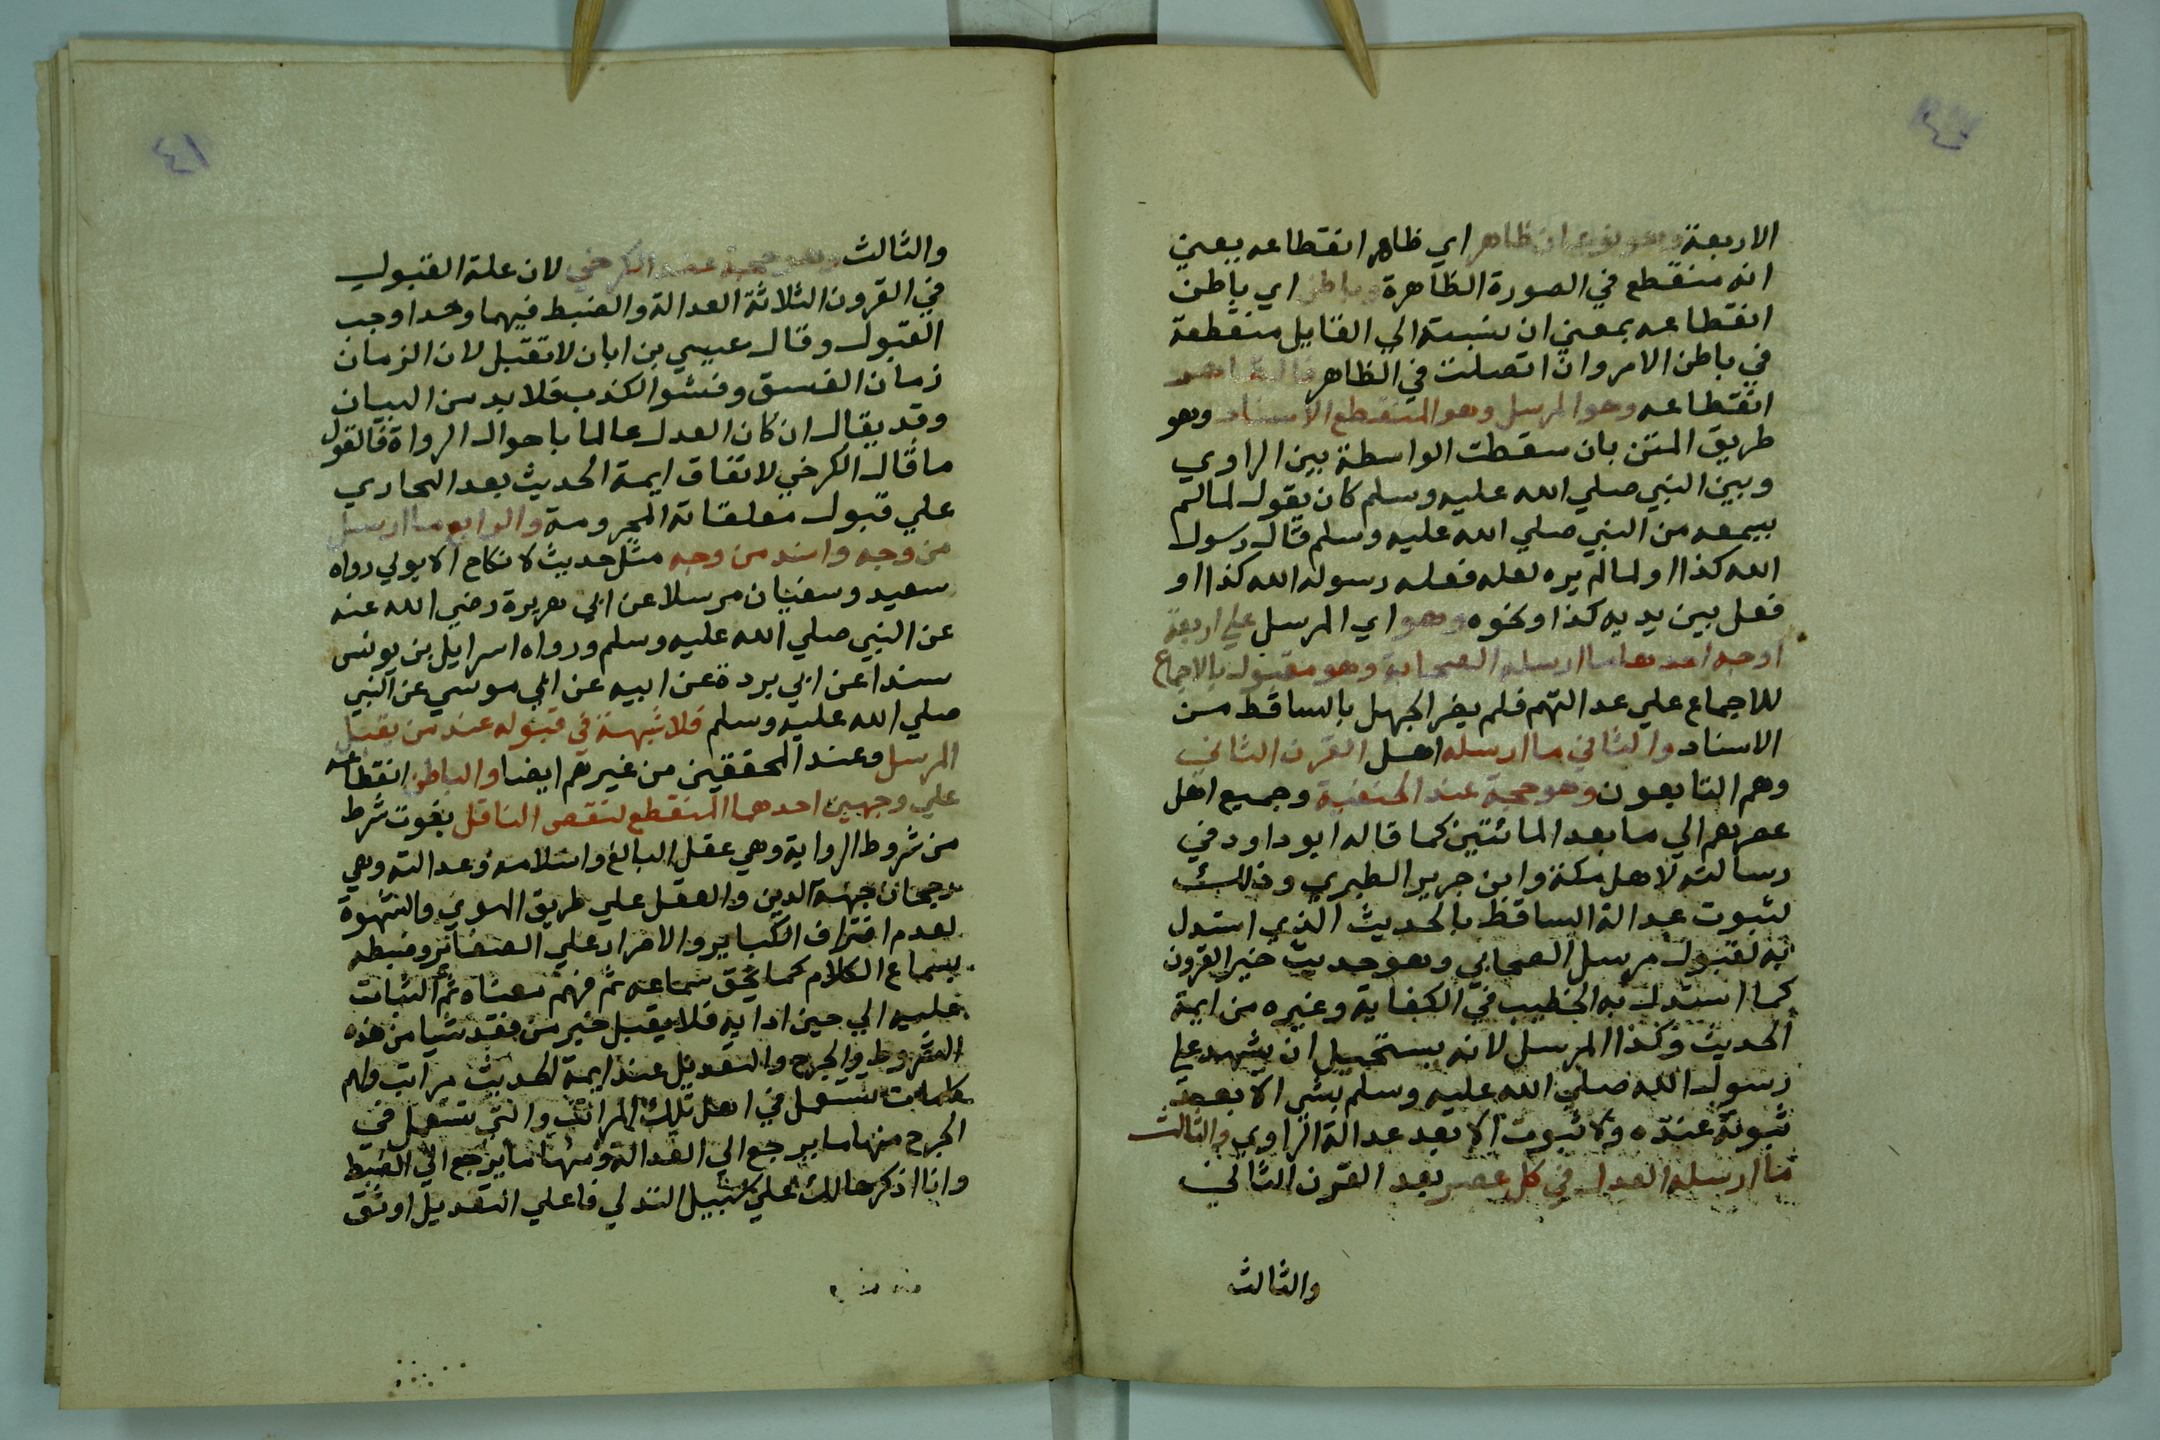 الاربعة وهو نوعان ظاهر اي ظاهر انقطاعه بمعني
انه منقطع في الصورة الظاهرة وباطن اي باطن
انقطاعه بمعني ان نسبته الي القايل منقطعة
في باطن الامر وان اتصلت في الظاهر فالظاهر
انقطاعه وهو المرسل وهو المنقطع الاسناد وهو
طريق المتن بان سقطت الواسطة بين الراوي
وبين النبي صلي الله عليه وسلم كان يقول لما لم
يسمعه من النبي صلي الله عليه وسلم قال رسول
الله كذا او لما لم يره لعله فعله رسول الله كذا او
فعل بين يديه كذا ونحوه وهو اي المرسل علي اربعة
اوجه احدها ما ارسله الصحابة وهو مقبول بالاجماع
للاجماع علي عدالتهم فلم يضر الجهل بالساقط من
الاسناد والثاني ما ارسله اهل القرن الثاني
وهم التابعون وهو حجة عند الحنفية وجميع اهل
عصرهم الي ما بعد المائتين كما قاله ابو داود في
رسالته لاهل مكة وابن جرير الطبري وذلك
لثبوت عدالة الساقط بالحديث الذي استدل
به لقبول مرسل الصحابي وهو حديث خير القرون
كما استدل به الخطيب في الكفاية وغيره من ايمة
الحديث وكذا المرسل لانه يستحيل ان يشهد علي
رسول الله صلي الله عليه وسلم بشي الا بعد
ثبوته عنده ولا ثبوت الا بعد عدالة الراوي والثالث
ما ارسله العدل في كل عصر بعد القرن الثاني
والثالث
٤١
والثالث وهو حجة عند الكرخي لان علة القبول
في القرون الثلاثة العدالة والضبط فيهما وجدا وجب
القبول وقال عيسي بن ابان لا تقبل لان الزمان
زمان الفسق وفشو الكذب فلا بد من البيان
وقد يقال ان كان العدل عالما باحوال الرواة فالقول
ما قال الكرخي لاتفاق ايمة الحديث بعد البخاري
علي قبول معلقاته المجزومة والرابع ما ارسل
من وجه واسند من وجه مثل حديث لا نكاح الا بولي رواه
سعيد وسفيان مرسلا عن ابي هريرة رضي الله عنه
عن النبي صلي الله عليه وسلم ورواه اسرايل بن يونس
سندا عن ابي بردة عن ابيه عن ابي موسي عن النبي
صلي الله عليه وسلم فلا شبهة في قبوله عند من يقبل
المرسل وعند المحققين من غيرهم ايضا والباطن انقطاعه
علي وجهين احدهما المنقطع لنقص الناقل بفوت شرط
من شروط الرواية وهي عقل البالغ واسلامه وعدالته وهي
رجحان جهة الدين والعقل علي طريق الهوي والشهوة
لعدم اقتراف الكباير والاصرار علي الصغائر وضبطه
بسماع الكلام كما يحق سماعه ثم فهم معناه ثم الثبات
عليه الي حين ادايه فلا يقبل خبر من فقد شيا من هذه
الشروط والجرح والتعديل عند ايمة الحديث مراتب ولهم
كلمات تستعمل في اهل تلك المراتب والتي تستعمل في
الجرح منها ما يرجع الي العدالة ومنها ما يرجع الي الضبط
وانا اذكرها لك علي سبيل التدلي فاعلي التعديل اوثق